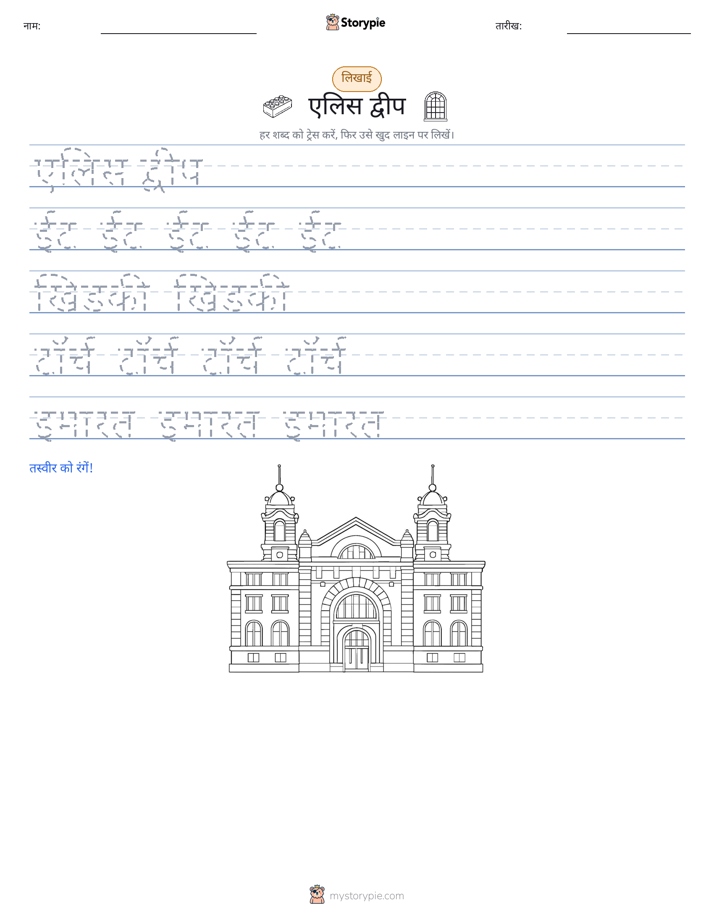 नाम:
Storypie
तारीख:
लिखाई
एलिस द्वीप
हर शब्द को ट्रेस करें, फिर उसे खुद लाइन पर लिखें।
एलिस द्वीप
ईंट ईंट ईंट ईंट ईंट
खिड़की खिड़की
टॉर्च टॉर्च टॉर्च टॉर्च
इमारत इमारत इमारत
तस्वीर को रंगें!
mystorypie.com